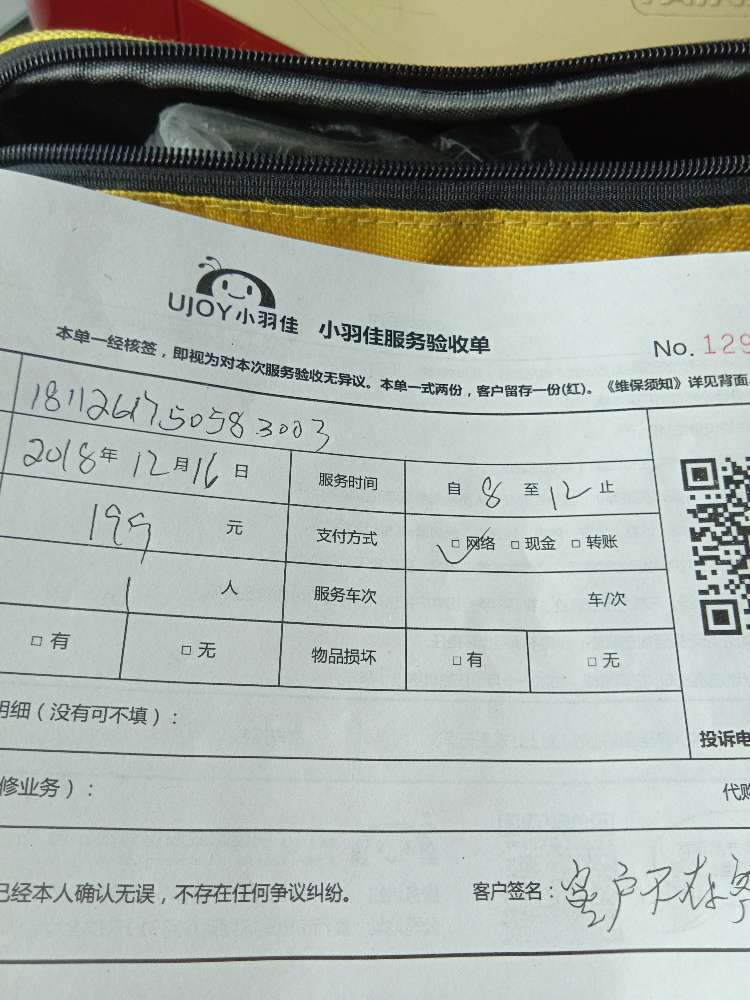 UJOY小羽佳 小羽佳服务验收单
No. 129
本单一经核签，即视为对本次服务验收无异议。本单一式两份，客户留存一份(红)。《维保须知》详见背面
2018年12月16日 服务时间 自 8 至 12 止
199 元 支付方式 □ 网络 □ 现金 □ 转账
1 人 服务车次 车/次
□ 有 □ 无 物品损坏 □ 有 □ 无
明细（没有可不填）：
投诉电
修业务）：
代购
已经本人确认无误，不存在任何争议纠纷。 客户签名：客户不在